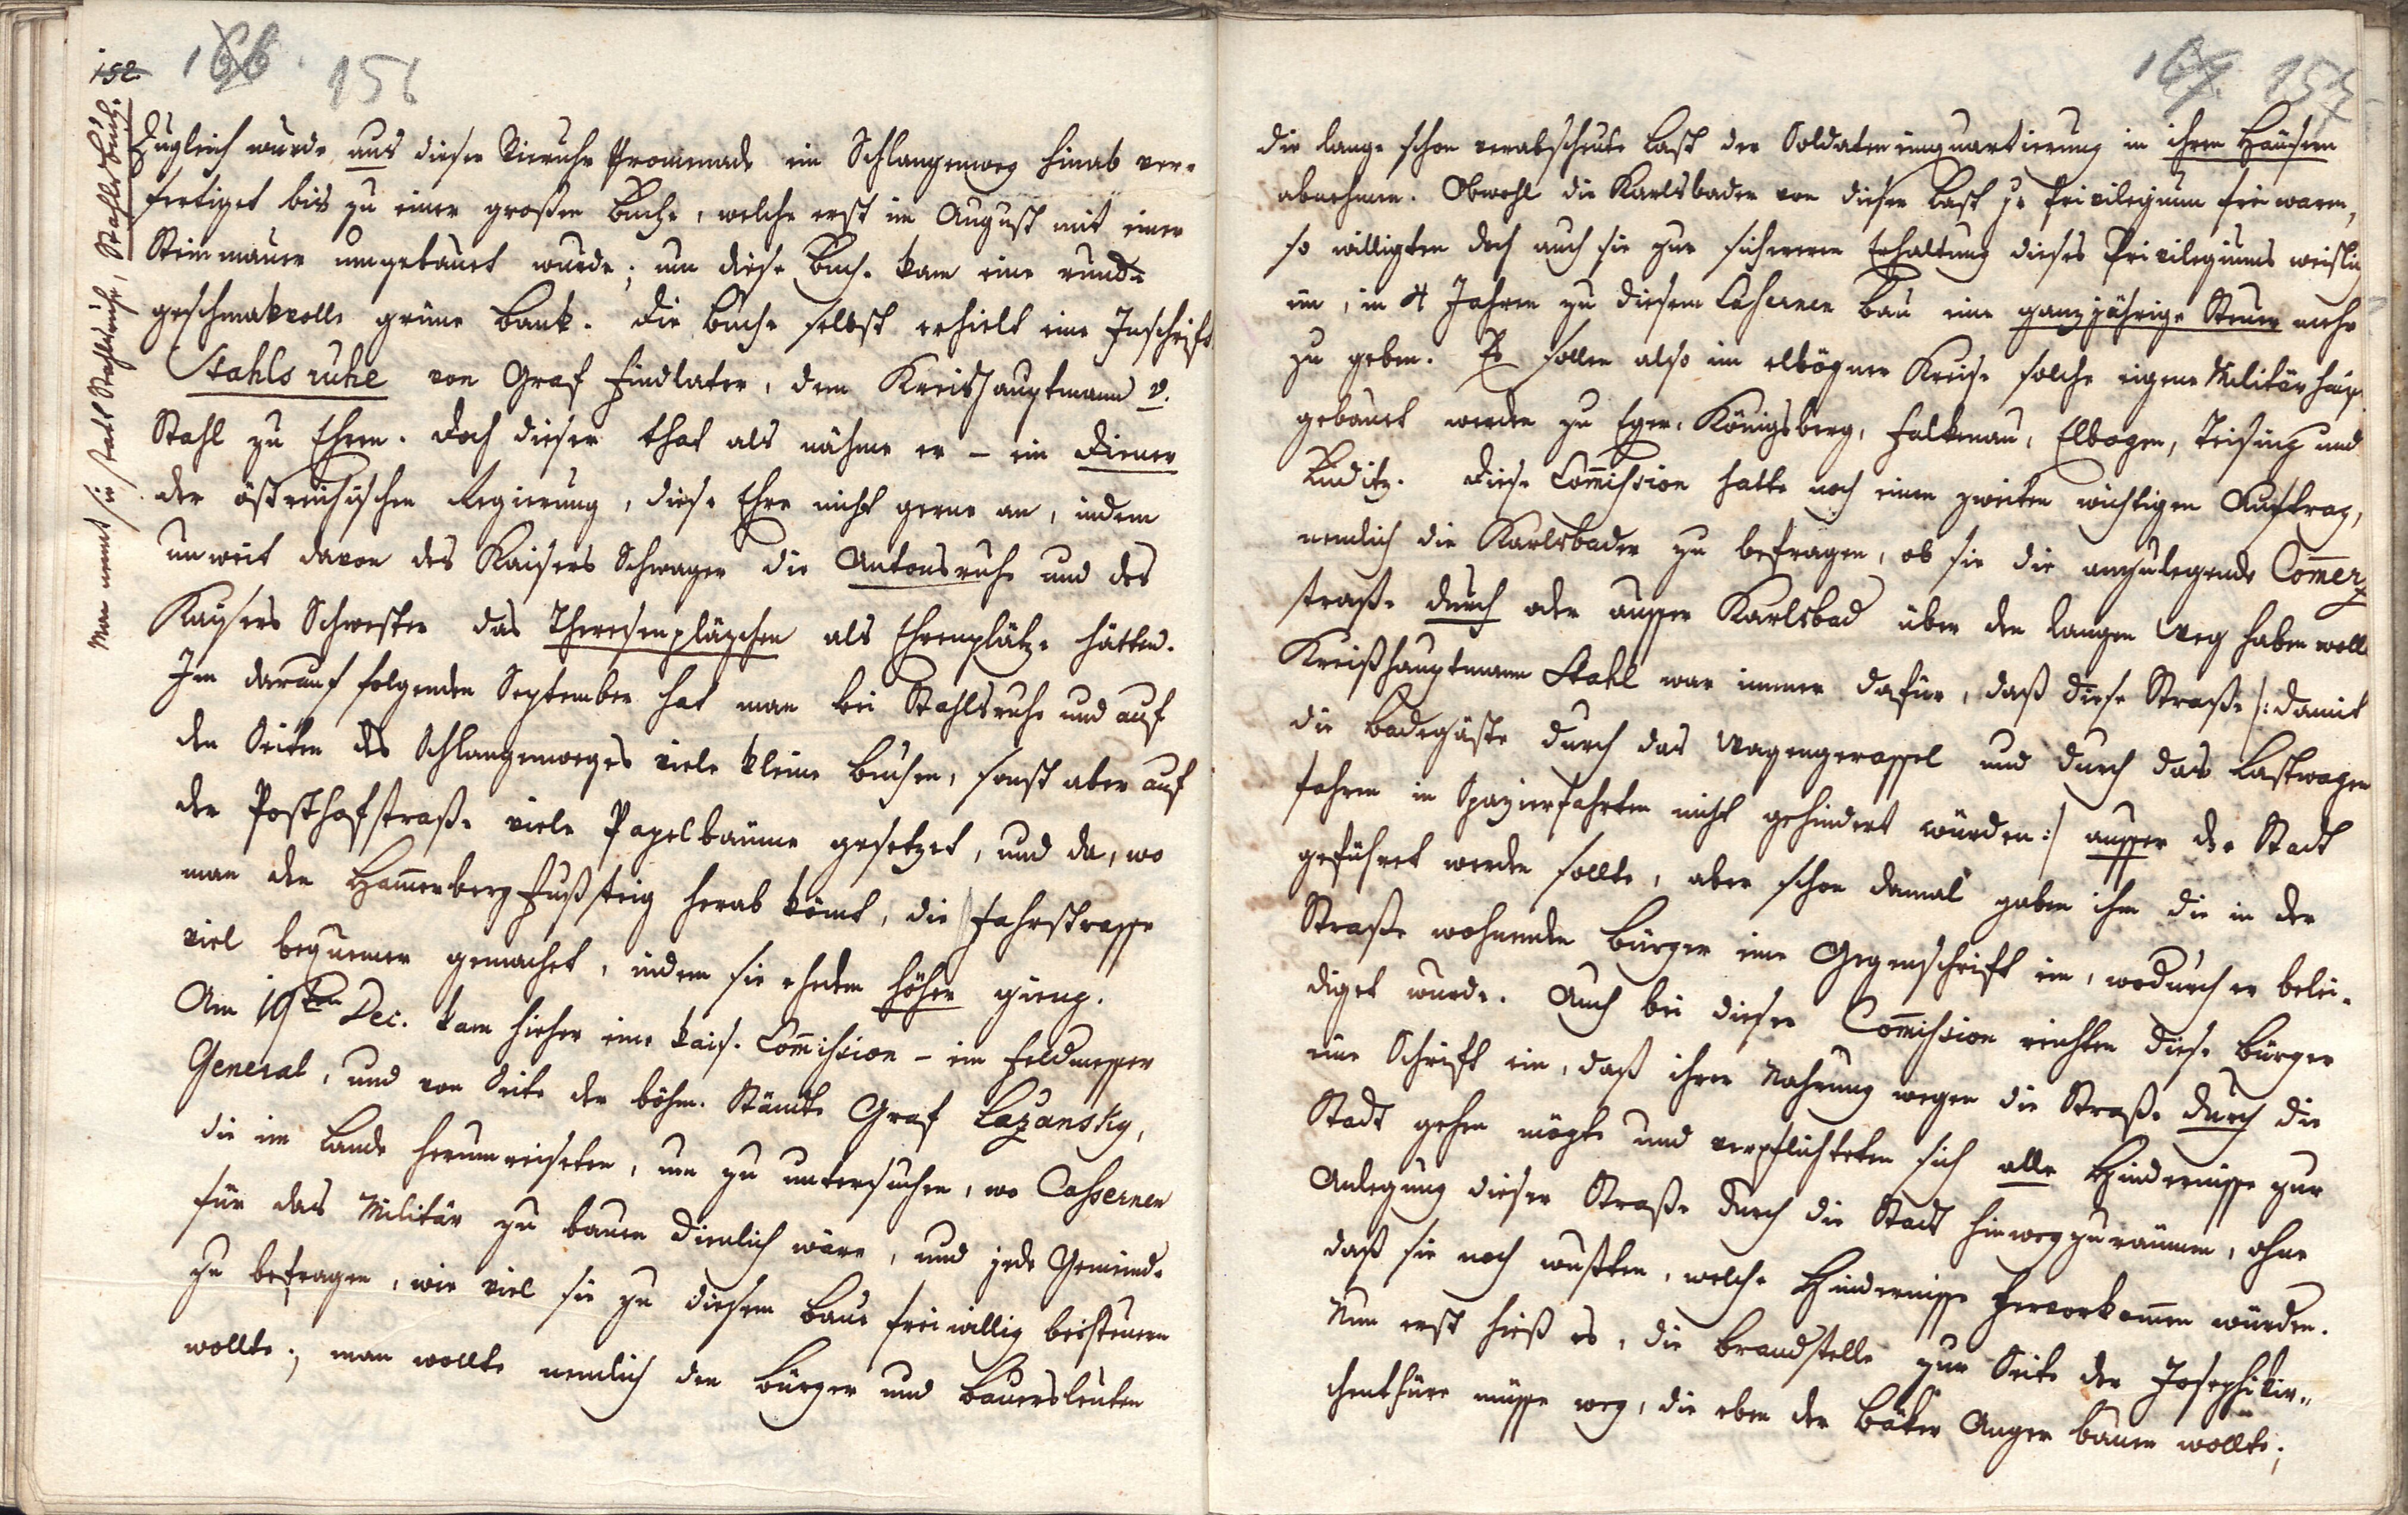 152.
166. 156
Man nennt sie statt Stahlsruhe, Stahlsbuch.
Zugleich wurde aus dieser Vieruhr Promenade ein Schlangenweg hinab ver-
fertiget bis zu einer großen Buche, welche erst im August mit einer
Steinmauer umgebauet wurde; um diese Buche kam eine runde
geschmakvolle grüne Bank. Die Buche selbst erhielt eine Inschrift
Stahls ruhe von Graf Findlater, dem Kreishauptmann v.
Stahl zu Ehren. Doch dieser that als nähme er – ein Diener
der östreichischen Regierung, diese Ehre nicht gerne an, indem
unweit davon des Kaisers Schwager die Antonsruhe und des
Kaysers Schwester das Theresenpläzchen als Ehrenplätze hätten.
Im darauf folgenden September hat man bei Stahlsruhe und auf
den Seiten des Schlangenweges viele kleine Buchen, sonst aber auf
der Posthofstraße viele Papelbäume gesetzet, und da, wo
man den Hamerberg Fußsteig herab kömt, die Fahrstrasse
viel bequemer gemachet, indem sie ehedem höher gieng.
Am 19ten Dec. kam hieher eine kais. Comission – ein Feldmesser
General, und von Seite der böhm. Stände Graf Lazansky,
die im Lande herumreiseten, um zu untersuchen, wo Cassernen
für das Militär zu bauen dienlich wäre, und jede Gemeinde
zu befragen, wie viel sie zu diesem Baue freiwillig beisteuern
wollte; man wollte nemlich den Bürger und Bauersleuten
167. 157
die lange schon verabscheute Last der Soldateneinquartierung in ihren Häusern
abnehmen. Obwohl die Karlsbader von dieser Last je Privilegium frei waren,
so willigten doch auch sie zur sicheren Erhaltung dieses Privilegiums weislich
ein, in 4 Jahren zu diesem Casernen Bau eine ganzjährige Steuer mehr
zu geben. Es sollen also im elbögner Kreise solche eigene Militärhäuser
gebauet werden zu Eger, Königsberg, Falkenau, Elbogen, Teising und
Luditz. Diese Comission hatte noch einen zweiten wichtigen Auftrag,
nemlich die Karlsbader zu befragen, ob sie die anzulegende Comerz
straße durch oder ausser Karlsbad über den langen Weg haben wollen
Kreißhauptmann Stahl war immer dafür, daß diese Straße /: damit
die Badegäste durch das Wagengerassel und durch das Lastwagen
fahren in Spazierfahrten nicht gehindert würden :/ ausser der Stadt
geführet werden sollte, aber schon damal gaben ihm die in der
Straße wohnenden Bürger eine Gegenschrift ein, wodurch er belei-
diget wurde. Auch bei dieser Comission reichten diese Bürger
eine Schrift ein, daß ihrer Nahrung wegen die Straße durch die
Stadt gehen mögte und verpflichteten sich alle Hindernisse zur
Anlegung dieser Straße durch die Stadt hinwegzuräumen, ohne
daß sie noch wußten, welche Hindernisse hervorkomen würden.
Nun erst hieß es, die Brandstelle zur Seite der Josephikir-
chenthüre müsse weg, die eben der Bäker Anger bauen wollte;